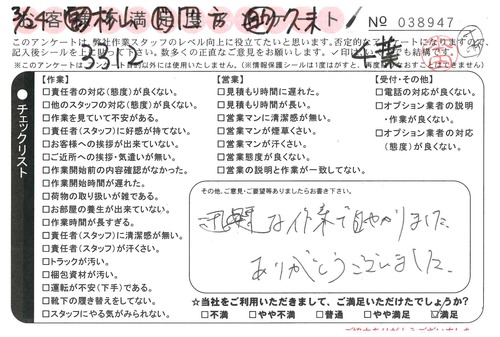 № 038947
このアンケートは、弊社作業スタッフのレベル向上に役立てたいと思います。否定的な
記入後シールを上に貼って下さい。数多くの正直なご意見をお願いします。
3312
千葉
チェックリスト
【作業】
□責任者の対応(態度)が良くない。
□他のスタッフの対応(態度)が良くない。
□作業を見ていて不安がある。
□責任者(スタッフ)に好感が持てない。
□お客様への挨拶が出来ていない。
□ご近所への挨拶・気遣いが無い。
□作業開始前の内容確認がなかった。
□作業開始時間が遅れた。
□荷物の取り扱いが雑である。
□お部屋の養生が出来ていない。
□作業時間が長すぎる。
□責任者(スタッフ)に清潔感が無い。
□責任者(スタッフ)が汗くさい。
□トラックが汚い。
□梱包資材が汚い。
□運転が不安(下手)である。
□靴下の履き替えをしてない。
□スタッフにやる気がみられない。
【営業】
□見積もり時間に遅れた。
□見積もり時間が長い。
□営業マンに清潔感が無い。
□営業マンが煙草くさい。
□営業マンが汗くさい。
□営業態度が良くない。
□営業の説明と作業が一致してない。
【受付・その他】
□電話の対応が良くない。
□オプション業者の説明
・作業が良くない。
□オプション業者の対応
(態度)が良くない。
その他、ご意見・ご要望等ありましたらお書き下さい。
な作業で助かりました
ありがとうございました。
☆当社をご利用いただきまして、ご満足いただけたでしょうか?
□不満 □やや不満 □普通 □やや満足 □満足